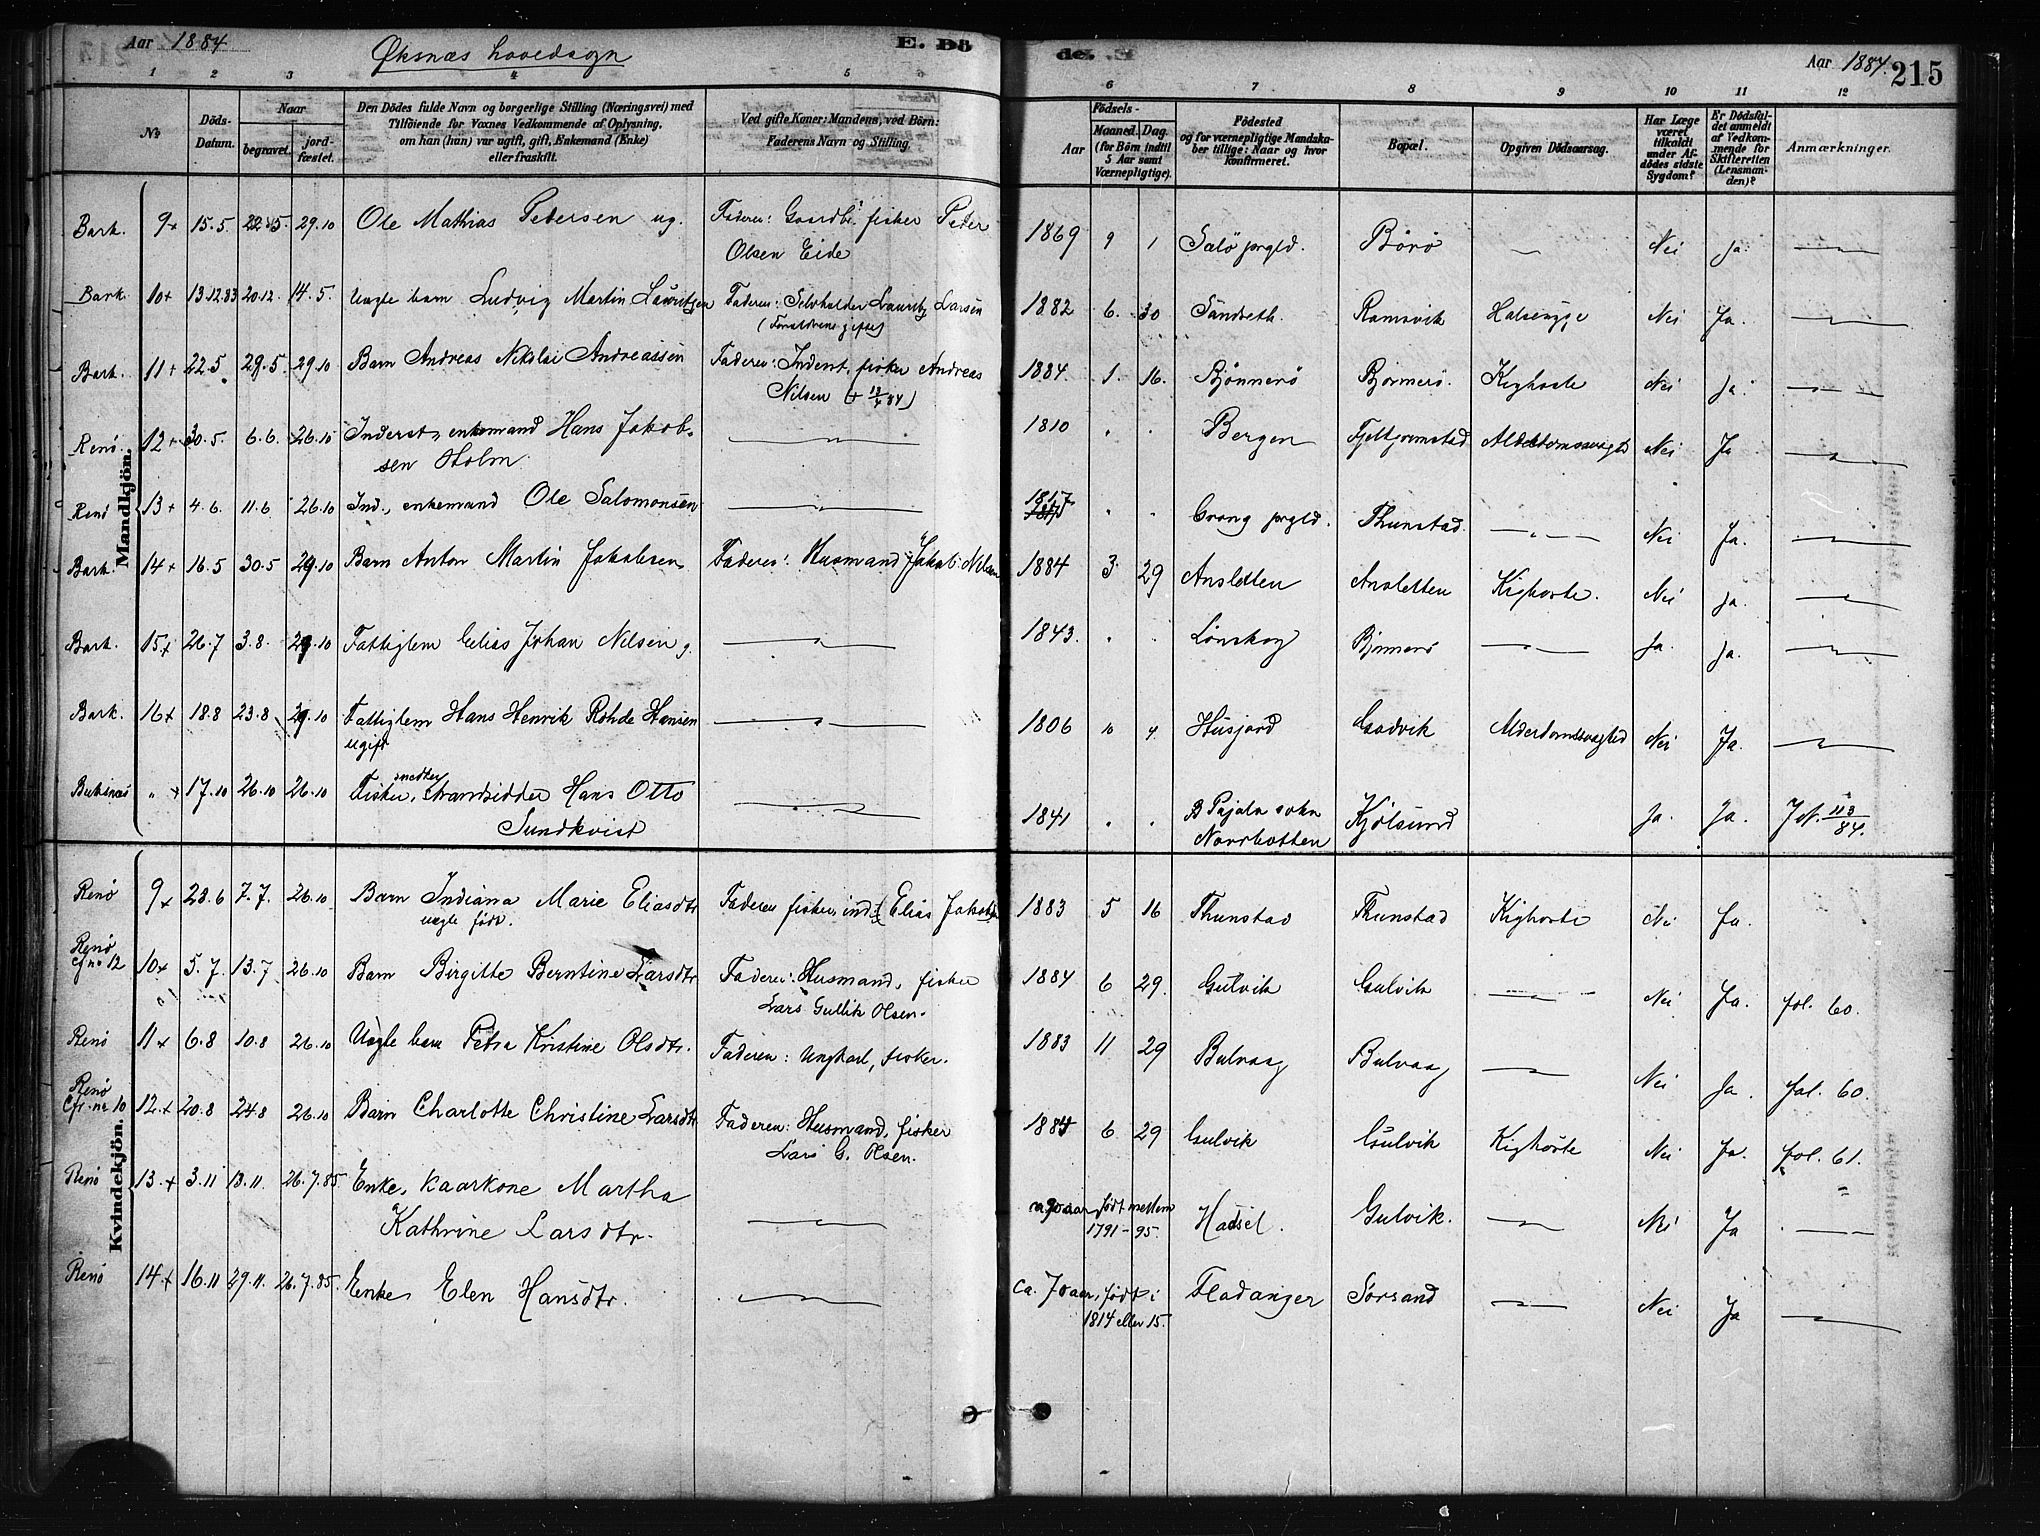 Aar 1884
Øksnæs hovedsogn
E. Dö
de.
Aar 1884.
215
1 2 3 4 5 6
6 7 8 9 10 11 12
No
Döds-Datum.
Naar
begravet.
jord-fæstet.
Den Dödes fulde Navn og borgerlige Stilling (Næringsvei) med
Tilföiende for Voxnes Vedkommende af Oplysning,
om han (hun) var ugift, gift, Enkemand (Enke)
eller fraskilt.
Ved gifte Koner: Mandens, ved Börn:
Faderens Navn og Stilling.
Aar
Födsels-
Maaned. Dag.
(for Børn indtil
5 Aar samt
Værnepligtige).
Födested
og for værnepligtige Mandska-
ber tillige: Naar og hvor
konfirmeret.
Bopæl.
Opgiven Dödsaarsag.
Har Læge
været
tilkaldt
under Af-
dödes sidste
Sygdom?
Er Dödsfal-
det anmeldt
af Vedkom-
mende for
Skifteretten
(Lensman-
den)?
Anmærkninger.
Mandkjön.
Bark. 9+ 15.5. 22.5 29.10 Ole Mathias Pedersen ug. Faderen: Gaardbr. fisker Peder Olsen Eide 1869 9 1 Salö prgld. Börö — Nei Ja. —
Bark. 10+ 13.12.83 20.12. 14.5. Uægte barn Ludvig Martin Lauritzen Faderen: Selvholder Lauritz Larsen (Forældrene gifte) 1882 6. 30 Sandseth Ramsvik Halssyge Nei Ja. —
Bark. 11+ 22.5 29.5. 29.10 Barn Andreas Nikolai Andreassen Faderen: Inderst, fisker Andreas Nilsen 1884. 1. 16. Bjönnerö Bjönnerö. Kighoste Nei Ja —
Renö. 12+ 30.5. 6.6. 26.10 Inderst, enkemand Hans Jakobsen Holm. — 1810 " " Bergen Alderdomssvaghed Nei Ja —
Renö 13+ 4.6. 11.6 26.10 Ind., enkemand Ole Salomonsen — 1817 " " Grong prgld. Thunstad. — Nei Ja. —
Bark. 14+ 16.5 30.5 29.10 Barn Anton Martin Jakobsen Faderen: Husmand Jakob Nilsen 1884 3 29 Ansletten Ansletten Kighoste. Nei Ja. —
Bark. 15+ 26.7 3.8. 29.10 Fattiglem Elias Johan Nilsen g. — 1843. " " Lönskog Bjönnerö — Ja. Ja. —
Bark. 16+ 18.8 23.8 29.10 Fattiglem Hans Henrik Rohde Hansen ugift — 1806 10 4 Husjord Gaadvik Alderdomssvaghed Nei Ja. —
Buksnæs " + 17.10 26.10 26.10 Fisker, snedker, strandsidder Hans Otto Sundkvist — 1841 " " Pajala sokn Norrbotten Kjölsund Ja. Ja. J.N. 113/84.
Kvindekjön.
Renö 9+ 28.6 7.7. 26.10 Barn Indiana Marie Eliasdtr uægte födt. Faderen fisker, ind. Elias Jakobsen 1883 5 16 Thunstad Thunstad Kighoste Nei Ja.
Renö cf no 12 10+ 5.7. 13.7 26.10 Barn Birgitte Berntine Larsdtr Faderen: Husmand, fisker Lars Gullik Olsen. 1884 6 29. Gulvik Gulvik — Nei Ja. fol. 60.
Renö 11+ 6.8 10.8 26.10 Uægte barn Petra Kristine Olsdtr. Faderen: Ungkarl, fisker. 1883 11 29 Bulvaag Bulvaag — Nei Ja. fol. 60.
Renö Cfr. no 10 12.+ 20.8 24.8 26.10 Barn Charlotte Christine Larsdtr. Faderen: Husmand, fisker Lars G. Olsen. 1884 6 29 Gulvik Gulvik Kighoste Nei Ja. fol. 61.
Renö 13.+ 3.11 13.11. 26.7.85. Enke, kaarkone Martha Kathrine Larsdtr. — 90 aar, födt mellem 1791-95. Hadsel. Gulvik. — Nei Ja —
Renö 14+ 16.11 29.11. 26.7.85. Enke, Elen Hansdtr. — ca. 70 aar, födt i 1814 eller 15. Fladanger Sörsand — Nei Ja —